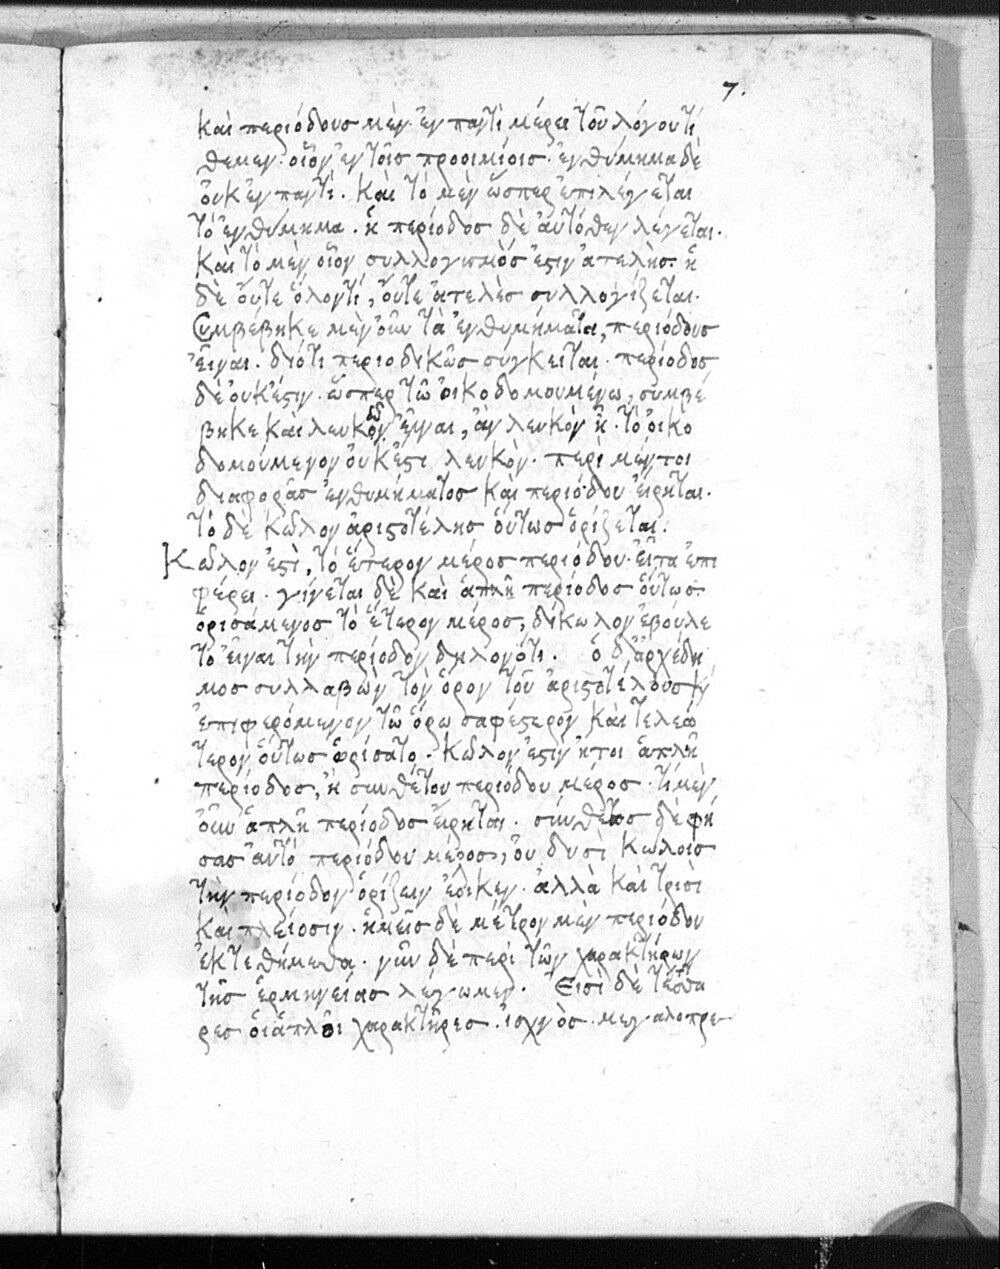 7.
καὶ περιόδους μὲν ἐν παντὶ μέρει τοῦ λόγου τί
θεμεν· οἷον ἐν τοῖς προοιμίοις· ἐνθύμημα δὲ
οὐκ ἐν παντί. καὶ τὸ μὲν ὥσπερ ἐπιλέγεται
τὸ ἐνθύμημα. ἡ περίοδος δὲ αὐτόθεν λέγεται.
καὶ τὸ μὲν οἷον συλλογισμός ἐστιν ἀτελὴς· ἡ
δὲ οὔτε ὅλον τί, οὔτε ἀτελὲς συλλογίζεται.
Συμβέβηκε μὲν οὖν τὰ ἐνθυμήματα, περιόδους
εἶναι. διότι περιοδικῶς σύγκειται. περίοδος
δὲ οὐκ ἔστιν. ὥσπερ τῶ οἰκοδομουμένω, συμβέ
βηκε καὶ λευκὸν εἶναι, ἂν λευκὸν ᾖ. τὸ οἰκο
δομούμενον οὐκ ἔστι λευκὸν. περὶ μέντοι
διαφορᾶς ἐνθυμήματος καὶ περιόδου εἴρηται.
τὸ δὲ κῶλον ἀριστοτέλης οὕτως ὁρίζεται.
Κῶλον ἐστὶ, τὸ ἕτερον μέρος περιόδου· εἶτα ἐπι
φέρει. γίνεται δὲ καὶ ἁπλῆ περίοδος οὕτως
ὁρισάμενος τὸ ἕτερον μέρος, δίκωλον ἐβούλε
το εἶναι τὴν περίοδον δηλονότι. ὁ δ' ἀρχέδη
μος συλλαβὼν τὸν ὅρον τοῦ ἀριστοτέλους καὶ
ἐπιφερόμενον τῶ ὅρω σαφέστερον καὶ τελεώ
τερον οὕτως ὡρίσατο. κῶλον ἐστιν ἤτοι ἁπλῆ
περίοδος, ἢ συνθέτου περιόδου μέρος. τί μὲν
οὖν ἁπλῆ περίοδος εἴρηται. συνθέτος δὲ φή
σας αὐτὸ περιόδου μέρος, οὐ δυσὶ κώλοις
τὴν περίοδον ὁρίζειν ἔοικεν. ἀλλὰ καὶ τρισὶ
καὶ πλείοσιν. ἡμεῖς δὲ μέτρον μὲν περιόδου
ἐκτεθήμεθα. νῦν δὲ περὶ τῶν χαρακτήρων
τῆς ἑρμηνείας λέγωμεν. Εἰσὶ δὲ τέσσα
ρες οἱ ἁπλοῖ χαρακτῆρες. ἰσχνὸς. μεγαλοπρε-